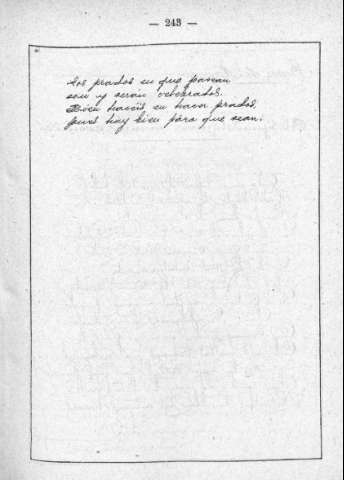 — 243 —
Los prados en que pasean
son y seran celebrados.
Bien haceis en hacer prados,
pues hay bien para que sean.